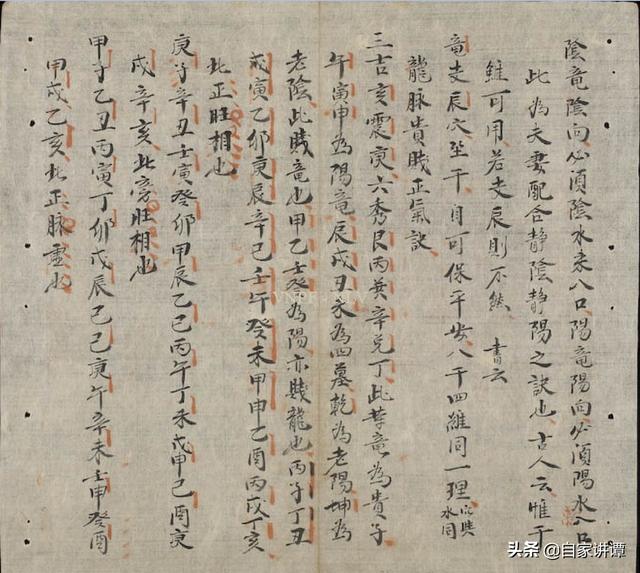 陰竜陰向必須陰水来入口陽竜陽向必須陽水入口
此為夫妻配合静陰静陽之訣也古人云惟干
維可用若支辰則不然 書云
竜支辰穴坐干自可保平安八干四維同一理
水同
龍脉貴賎正氣訣
三吉亥震庚六秀艮丙巽辛兌丁此等竜為貴子
午寅申為陽竜辰戌丑未為四墓乾為老陽坤為
老陰此賎竜也甲乙壬癸為陽亦賎龍也丙子丁丑
戊寅乙卯庚辰辛巳壬午癸未甲申乙酉丙戌丁亥
此正旺相也
庚子辛丑壬寅癸卯甲辰乙巳丙午丁未戊申己酉庚
戌辛亥此旁旺相也
甲子乙丑丙寅丁卯戊辰己巳庚午辛未壬申癸酉
甲戌乙亥此正脉也
头条 @自家讲谭